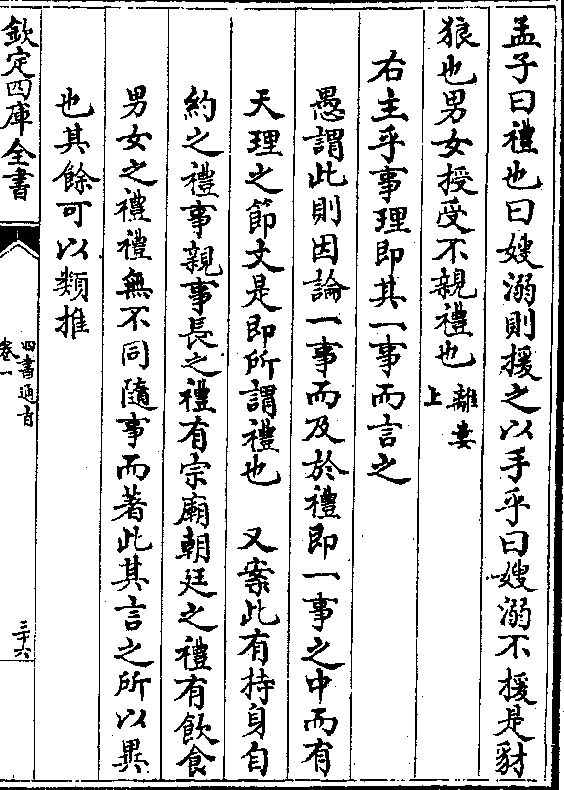 孟子曰禮也曰嫂溺則援之以手乎曰嫂溺不援是豺
狼也男女授受不親禮也離婁上
右主乎事理即其一事而言之
愚謂此則因論一事而及於禮即一事之中而有
天理之節文是即所謂禮也 又案此有持身自
約之禮事親事長之禮有宗廟朝廷之禮有飲食
男女之禮禮無不同隨事而著此其言之所以異
也其餘可以類推
欽定四庫全書
四書通旨
卷一
三十六